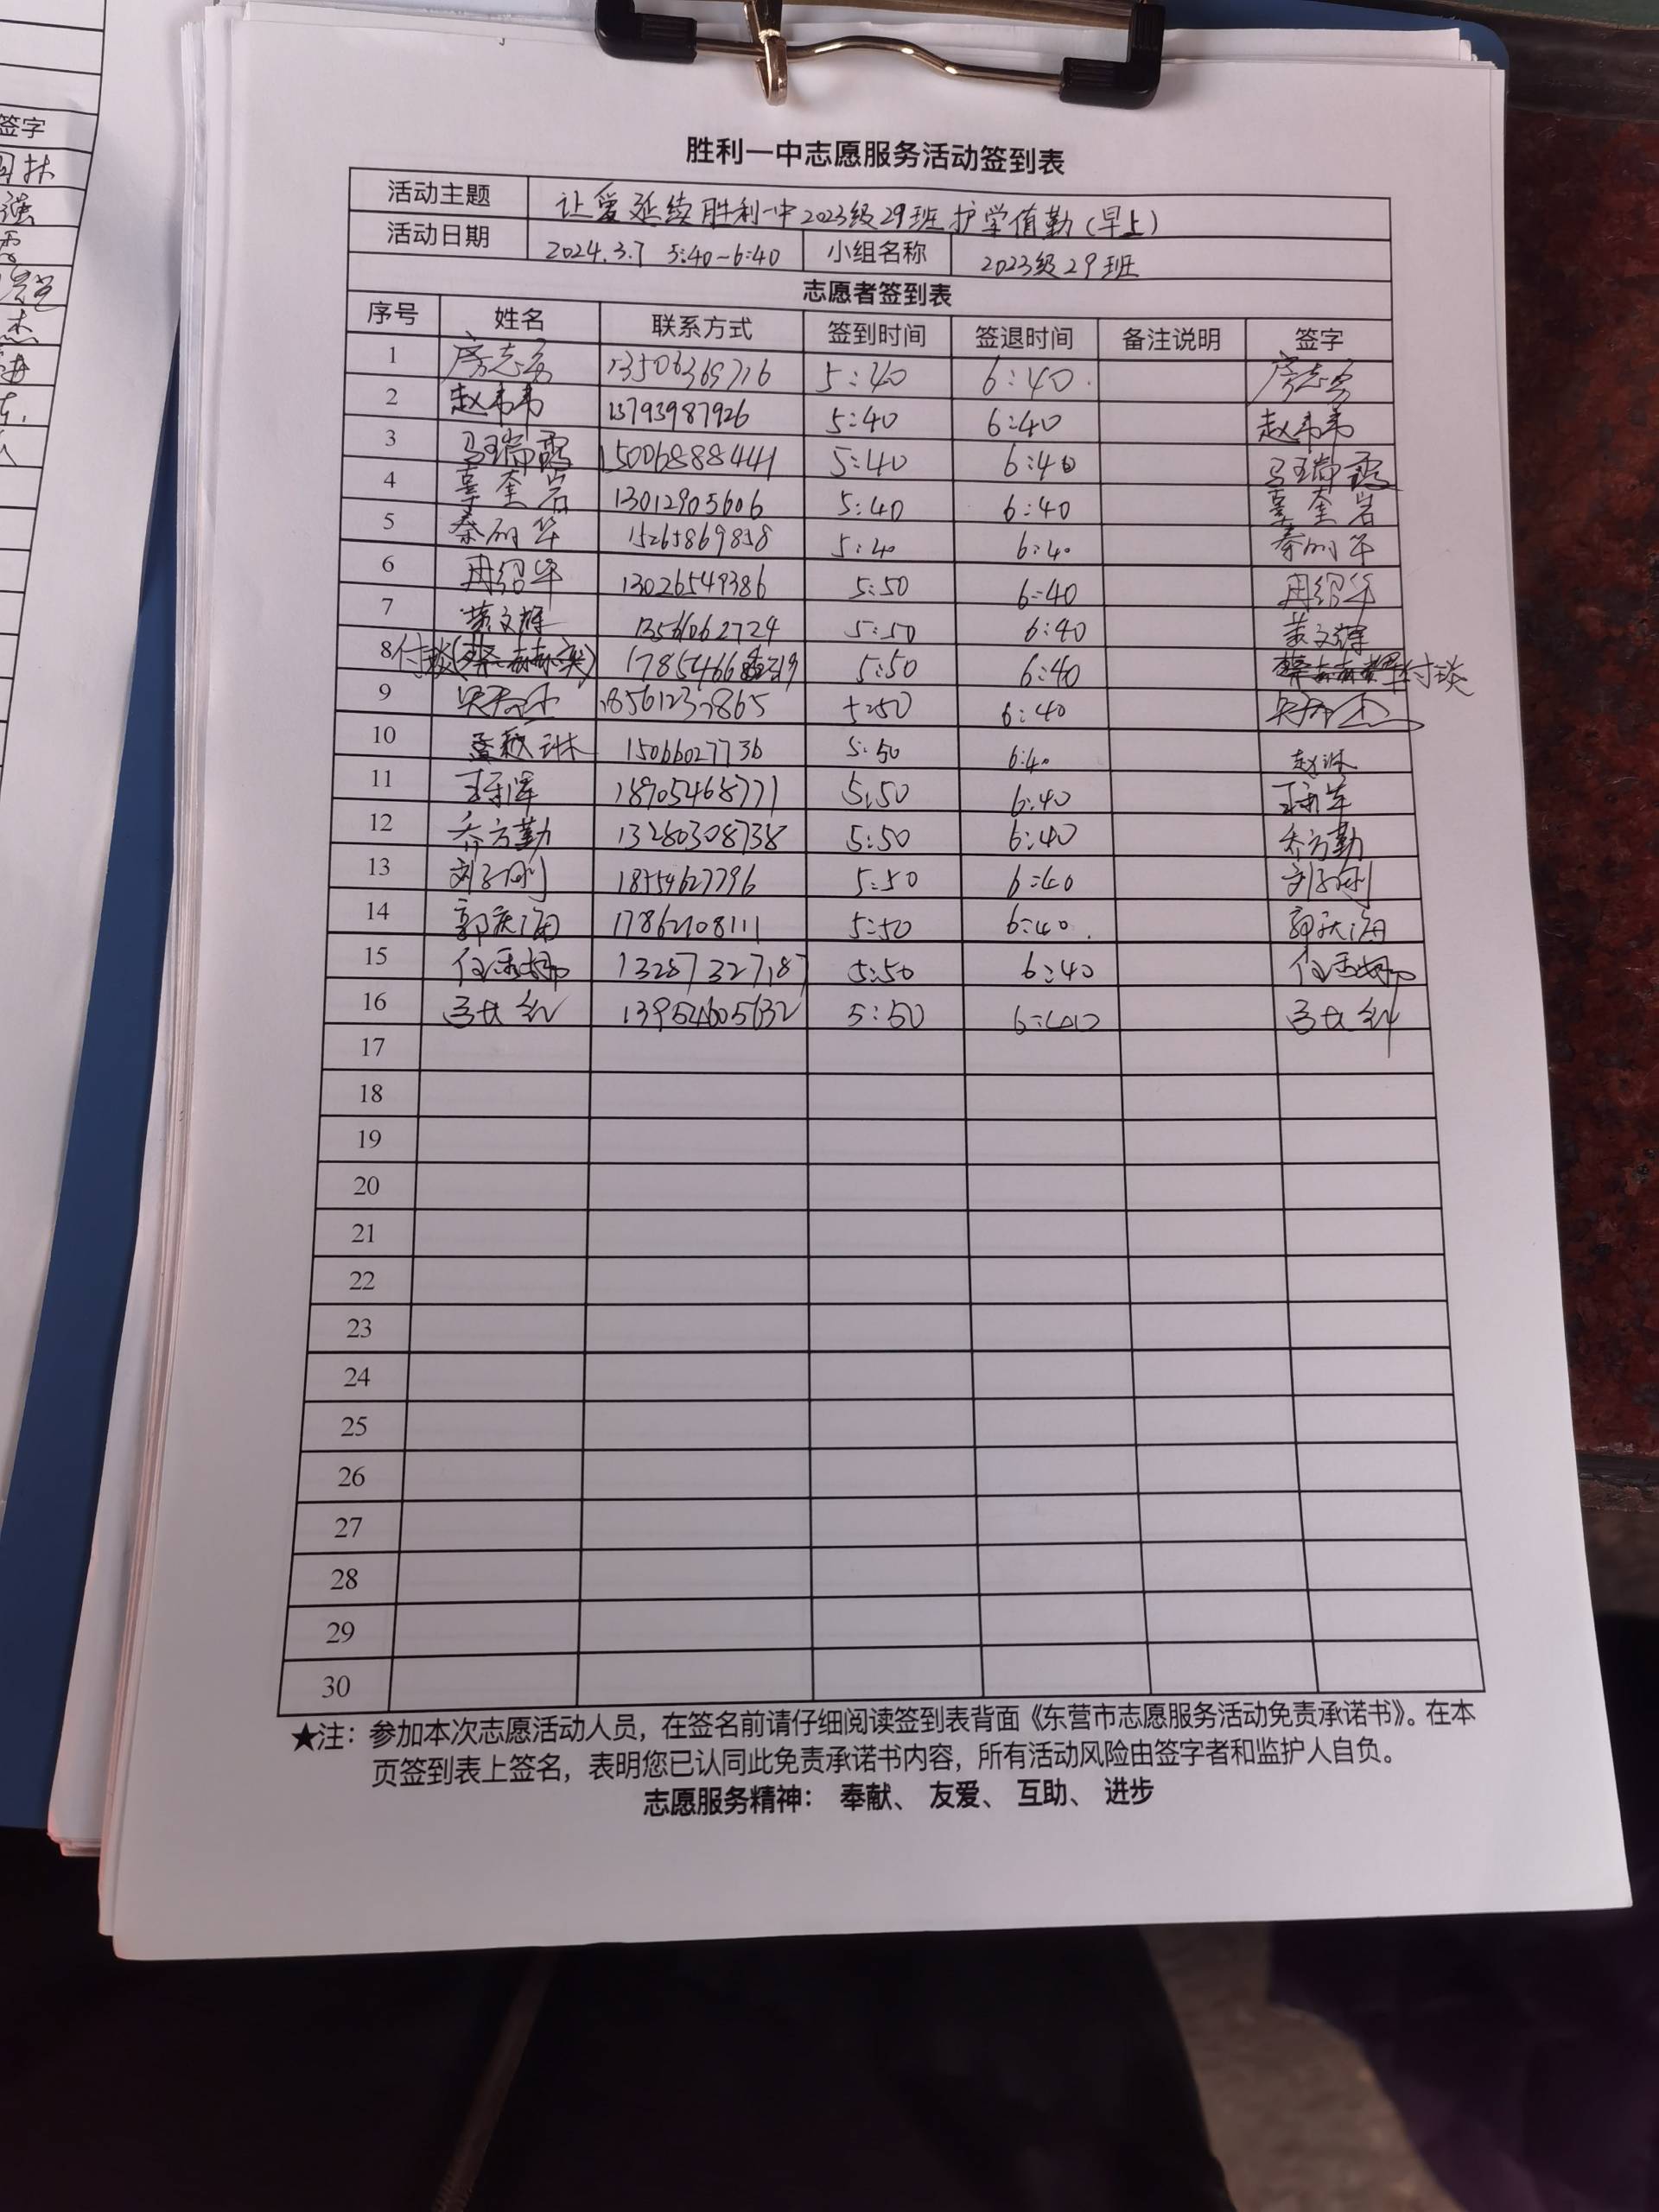 胜利一中志愿服务活动签到表
活动主题 让爱延续胜利一中2023级29班护学值勤(早上)
活动日期 2024.3.7 5:40-6:40 小组名称 2023级29班
志愿者签到表
序号 姓名 联系方式 签到时间 签退时间 备注说明 签字
1 13506369716 5:40 6:40
2 赵韦韦 13793987926 5:40 6:40 赵韦韦
3 马瑞霞 15006888441 5:40 6:40 马瑞霞
4 辜奎岩 13012905606 5:40 6:40 辜奎岩
5 秦丽华 15265869858 5:40 6:40 秦丽华
6 冉绍华 13026549386 5:50 6:40 冉绍华
7 黄文辉 13561062724 5:50 6:40 黄文辉
8 付琰 5:50 6:40 付琰
9 18561233865 5:50 6:40
10 赵琳 15066027736 5:50 6:40 赵琳
11 18905468771 5:50 6:40
12 乔方勤 13280308738 5:50 6:40 乔方勤
13 18554627796 5:50 6:40
14 郭庆海 17862108111 5:50 6:40 郭庆海
15 13287327187 5:50 6:40
16 13954605632 5:50 6:40
17
18
19
20
21
22
23
24
25
26
27
28
29
30
★注：参加本次志愿活动人员，在签名前请仔细阅读签到表背面《东营市志愿服务活动免责承诺书》。在本
页签到表上签名，表明您已认同此免责承诺书内容，所有活动风险由签字者和监护人自负。
志愿服务精神： 奉献、 友爱、 互助、 进步
签字